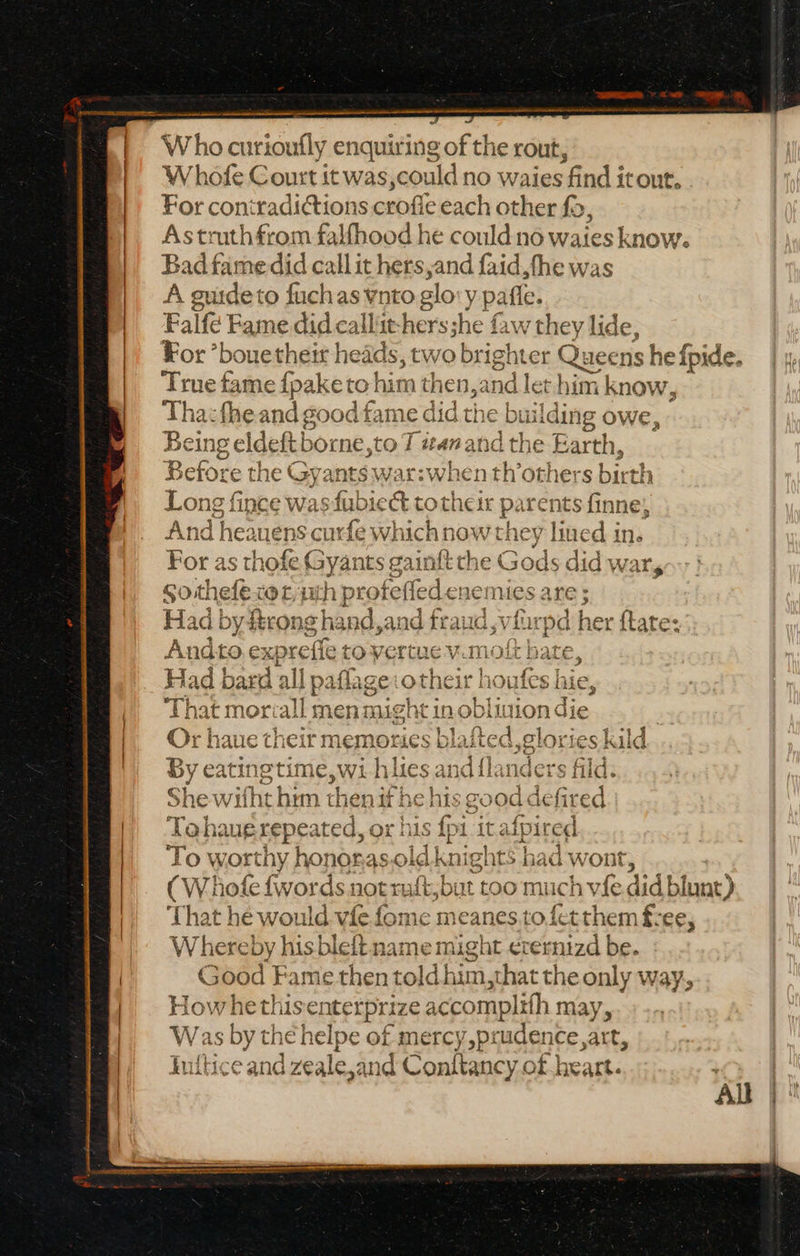 Who curiouſly enquiring of the rout,
Whoſe Court it was,could no waies find it out.
For contradictions croſſe each other ſo,
As truth from falſhood he could no waies know.
Bad fame did call it hers,and ſaid,ſhe was
A guide to ſuch as vnto glory paſſe.
Falſe Fame did call it hers;he ſaw they lide,
For 'boue their heads, two brighter Queens he ſpide.
True fame ſpake to him then,and let him know,
That ſhe and good fame did the building owe,
Being eldeſt borne,to Titan and the Earth,
Before the Gyants war:when th'others birth
Long ſince was ſubiect to their parents ſinne,
And heauens curſe which now they liued in.
For as thoſe Gyants gainſt the Gods did war,
So theſe to truth profeſſed enemies are;
Had by ſtrong hand,and fraud,vſurpd her ſtate:
And to expreſſe to vertue v moſt hate,
Had bard all paſſage to their houſes hie,
That mortall men might in obliuion die
Or haue their memories blaſted,glories kild
By eating time,with lies and ſlanders fild.
She wiſht him then if he his good deſired
To haue repeated, or his ſpirit aſpired
To worthy honor as old knights had wont,
(Whoſe ſwords not ruſt,but too much vſe did blunt)
That he would vſe ſome meanes to ſet them free,
Whereby his bleſt name might eternizd be.
Good Fame then told him,that the only way,
How he this enterprize accompliſh may,
Was by the helpe of mercy,prudence,art,
Iuſtice and zeale,and Conſtancy of heart.
All